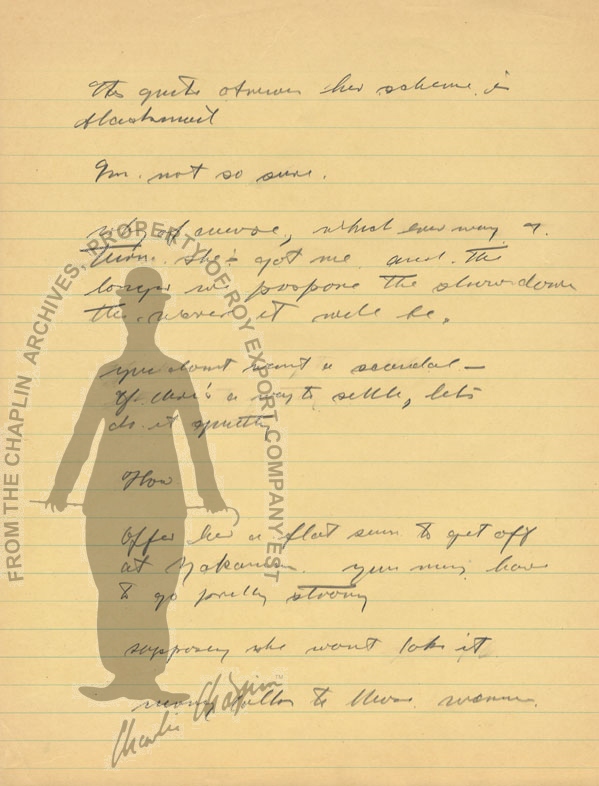 Its quite obvious her scheme is
blackmail
Im not so sure.
why of course, which ever way I
turn. She's got me and. The
longer we pospone the showdown
the worse it will be.
you dont want a scandal —
If there's a way to settle, lets
do it quietly
How
Offer her a flat sum to get off
at Yokohama. you may have
to go pretty strong
supposing she wont take it
money talks to those women.
FROM THE CHAPLIN ARCHIVES, PROPERTY OF ROY EXPORT COMPANY EST
Charlie Chaplin™